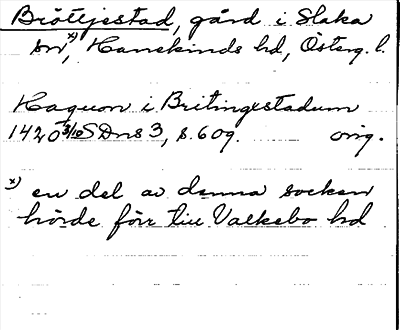 Bröttjestad, gård i Slaka
sn x), Hanekinds hd, Österg. l.
Haquon i Britingestadum
1420 3/10 SDns 3, s. 609. orig.
x) en del av denna socken
hörde förr till Valkebo hd